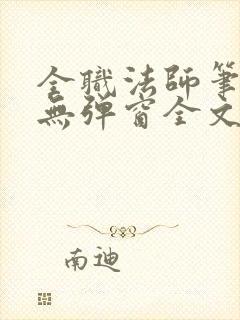 全職法師筆
無彈窗全文
南迪